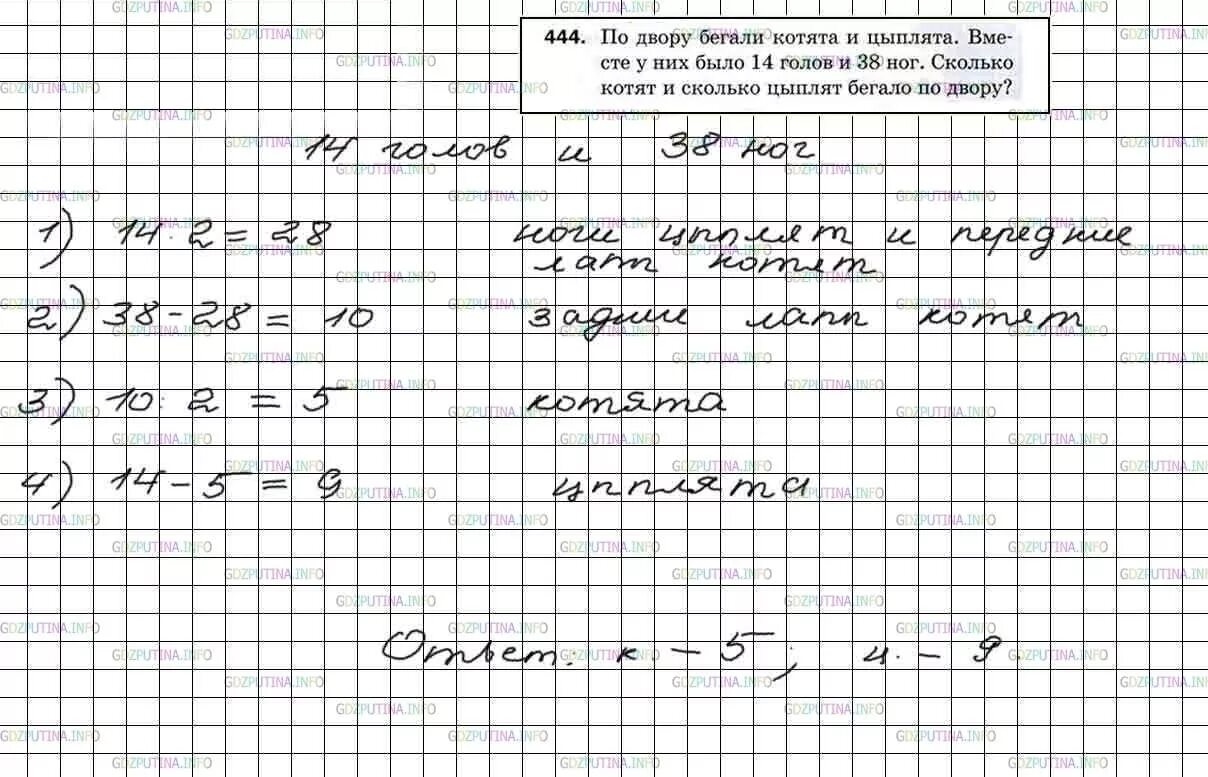 444. По двору бегали котята и цыплята. Вме-
сте у них было 14 голов и 38 ног. Сколько
котят и сколько цыплят бегало по двору?
14 голов и 38 ног
1) 14·2=28 ноги цплят и передние
лап котят
2) 38-28=10 задние лапп котят
3) 10:2=5 котята
4) 14-5=9 цпплята
Ответ: к. - 5; ц. - 9
GDZPUTINA.INFO